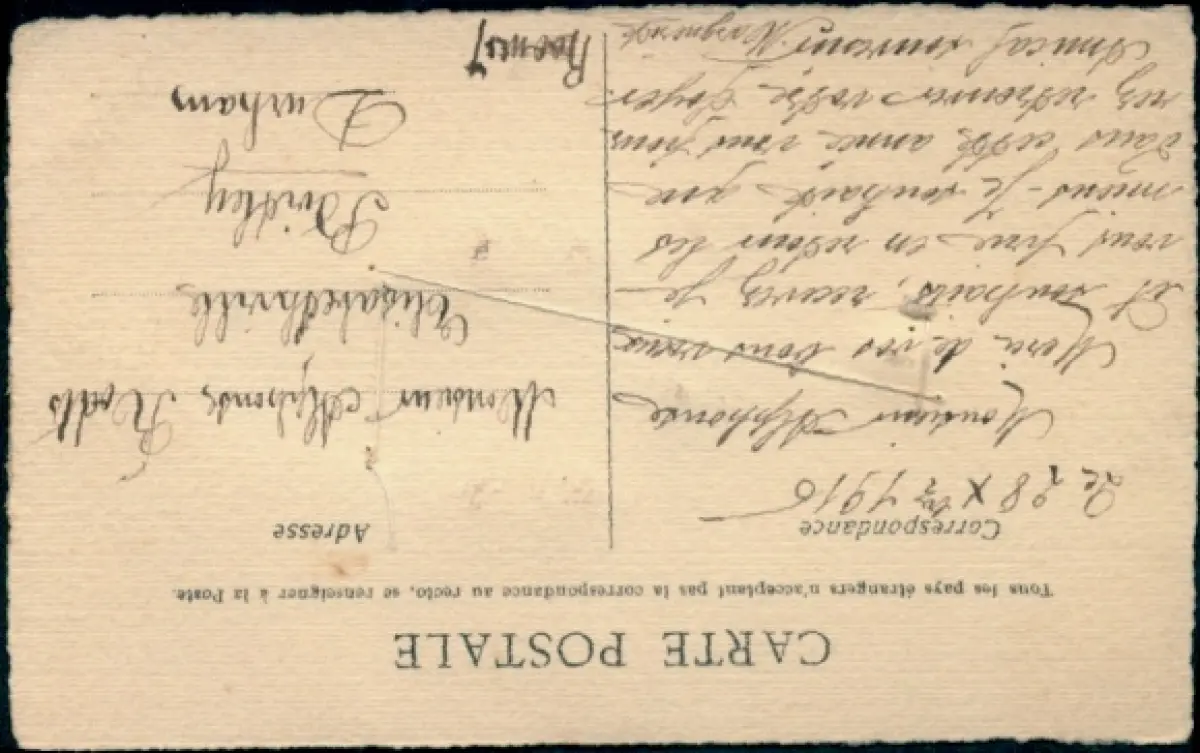 CARTE POSTALE
Tous les pays étrangers n'acceptant pas la correspondance au recto, se renseigner à la Poste.
Correspondance
Le 28 Xbre 1916
Monsieur Alphonse
Merci de vos bons vœux
et souhaits, recevez, je
vous prie en retour les
miens - Je souhaite que
dans cette année vous puis
siez retrouver votre foyer
Amical souvenir Marguerite
Adresse
Monsieur Alphonse
Elisabethville
Birtley
Durham